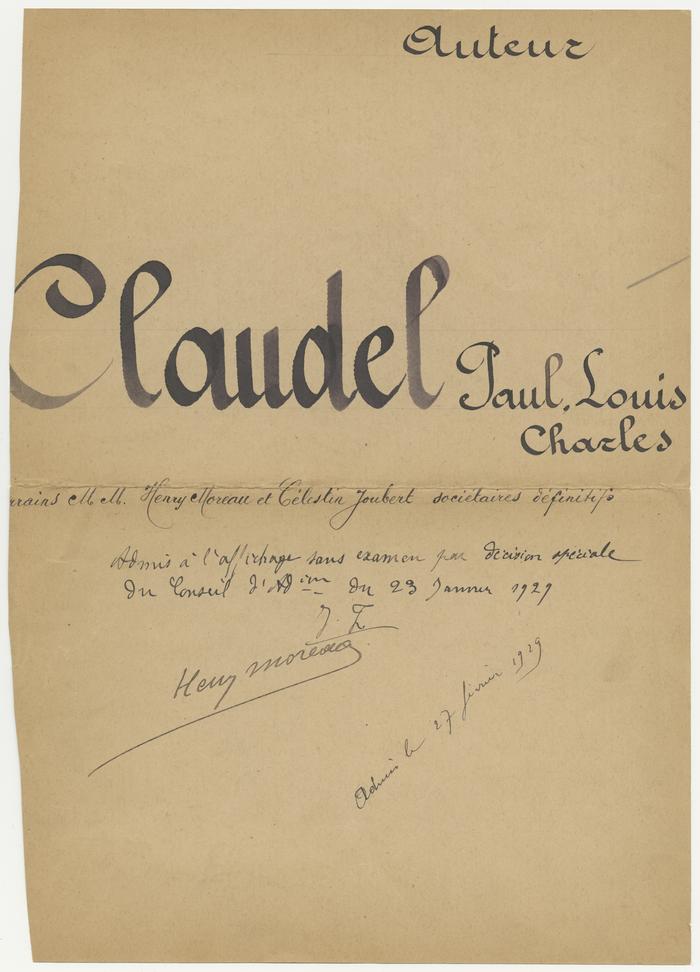 Auteur
Claudel Paul, Louis
Charles
rrains M M. Henry Moreau et Célestin Joubert sociétaires définitifs
Admis à l'affichage sans examen par décision spéciale
du Conseil d'Adion du 23 Janvier 1929
Henry Moreau
Admis le 27 février 1929